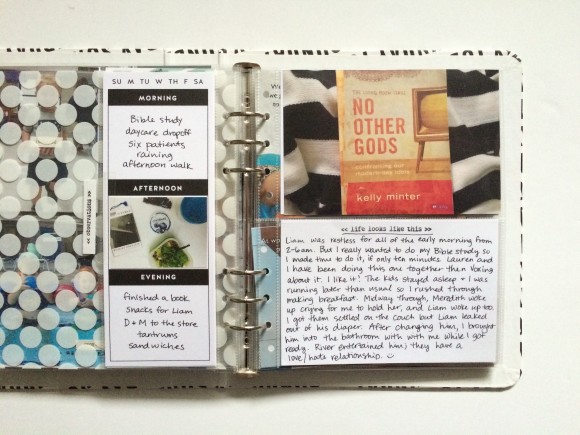 SU M TU W TH F SA
MORNING
Bible study
daycare dropoff
Six patients
raining
afternoon walk
<< observations >>
AFTERNOON
EVENING
Finished a book
Snacks for Liam
D + M to the store
tantrums
Sandwiches
NO
OTHER
GODS
confronting our
modern-day idols
kelly minter
<< life looks like this >>
Liam was restless for all of the early morning from
2-6am. But I really wanted to do my Bible study so
I made time to do it, if only ten minutes. Lauren and
I have been doing this one together then Voxing
about it. I like it! The kids stayed asleep + I was
running later than usual so I rushed through
making breakfast. Midway through, Meredith woke
up crying for me to hold her, and Liam woke up too.
I got them settled on the couch but Liam leaked
out of his diaper. After changing him, I brought
him into the bathroom with with me while I got
ready. River entertained him; they have a
love/hate relationship.